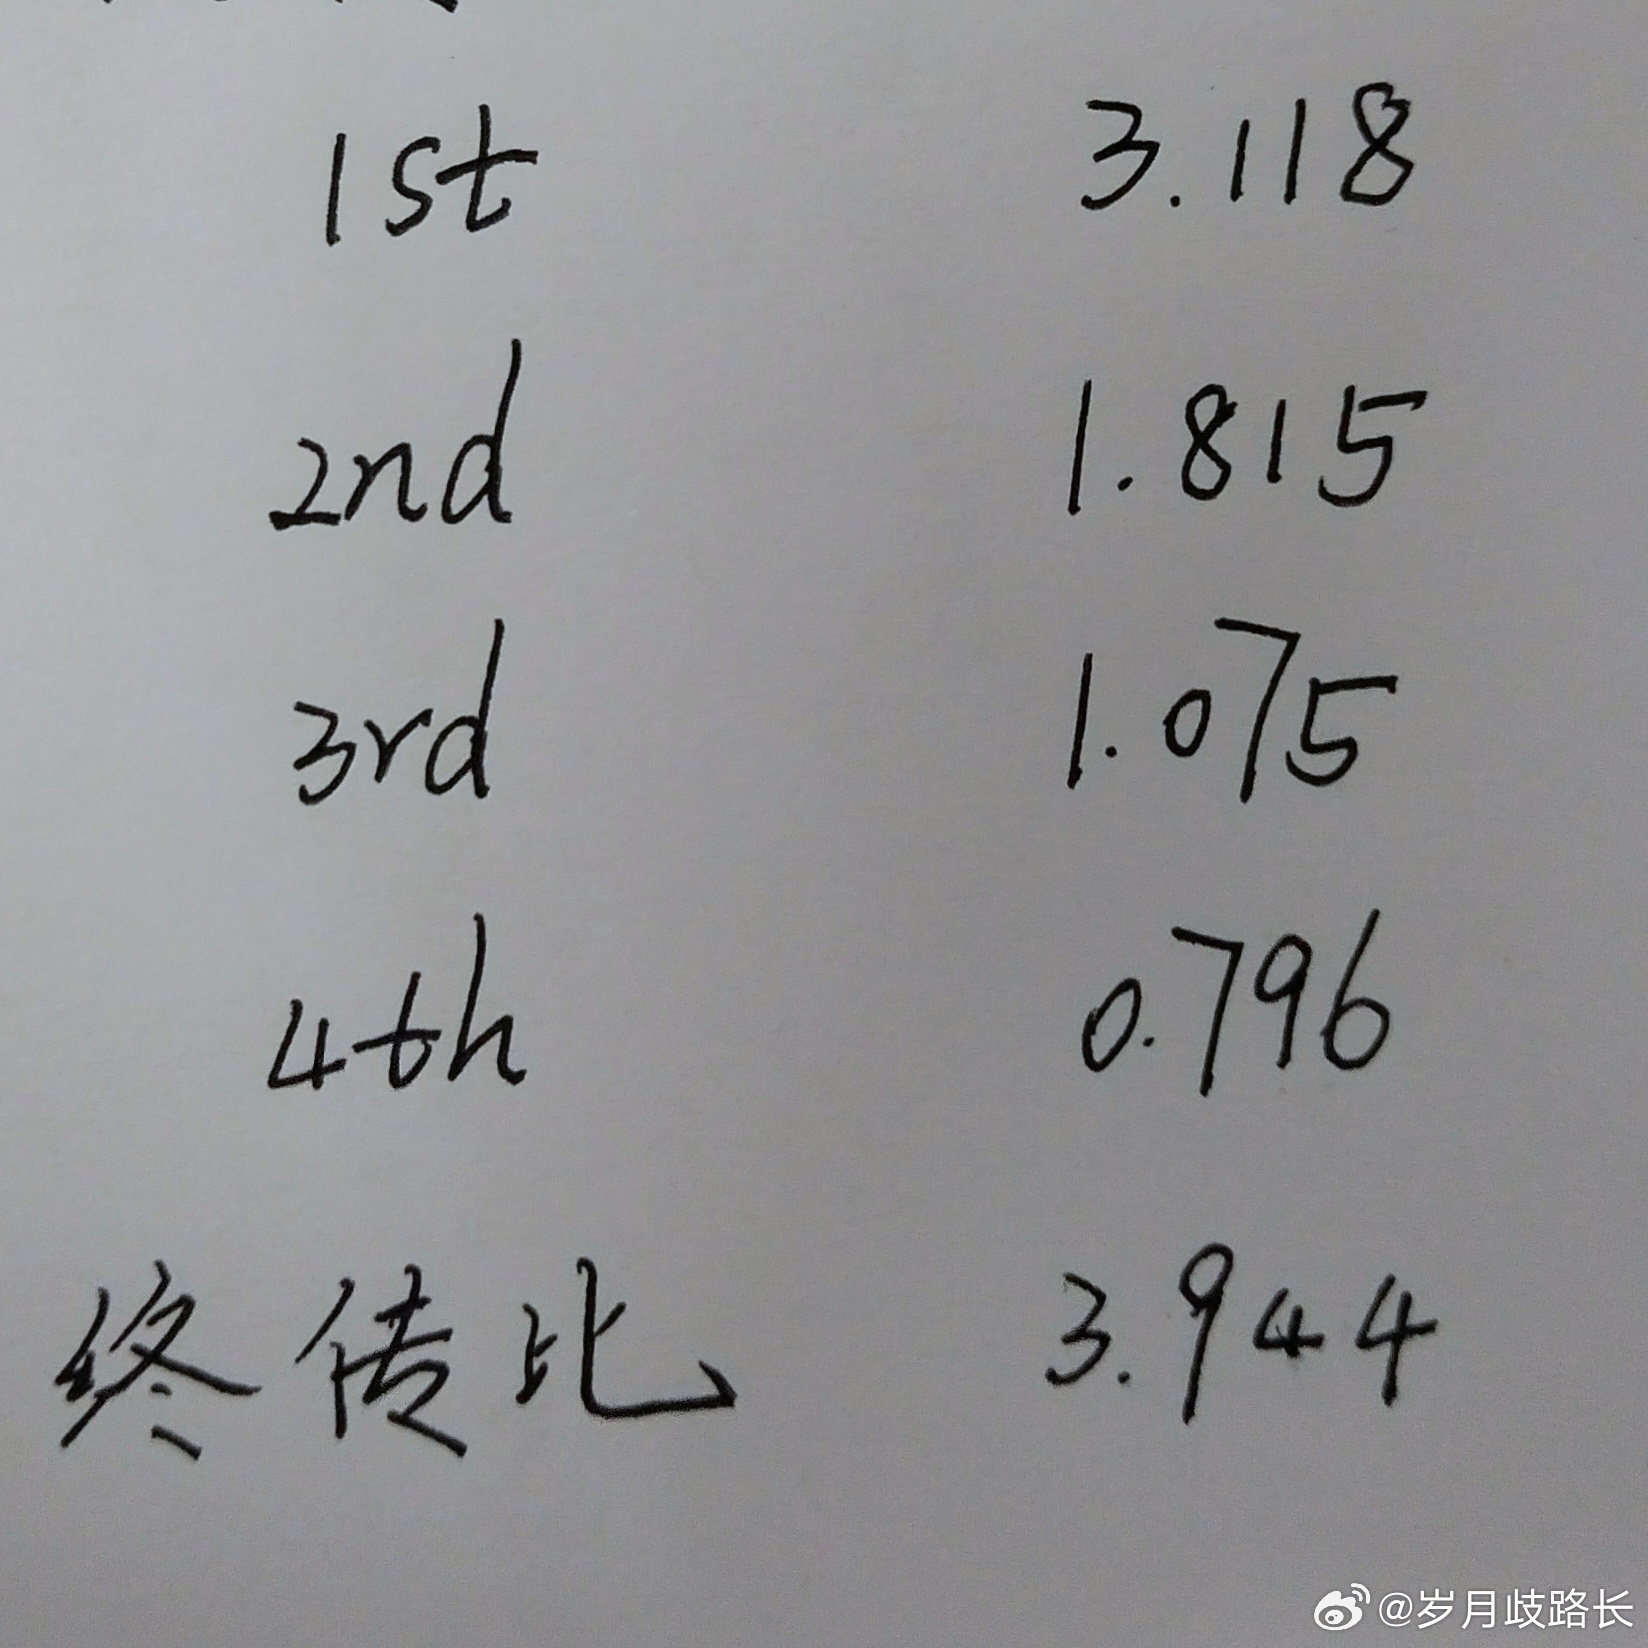 1st 3.118
2nd 1.815
3rd 1.075
4th 0.796
终传比 3.944
@岁月歧路长